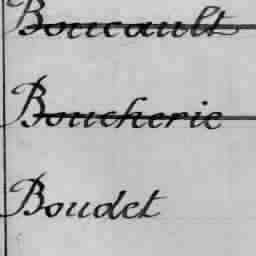 Boucault
Boucherie
Boudet